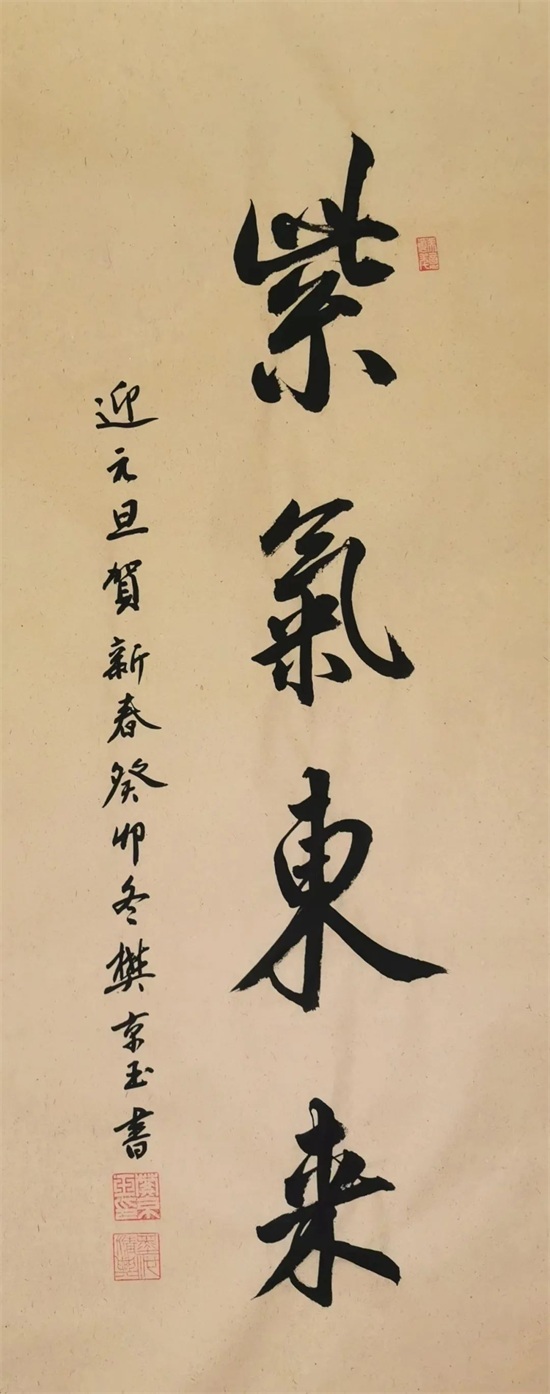 紫氣東来
迎元旦賀新春癸卯冬樊京玉書